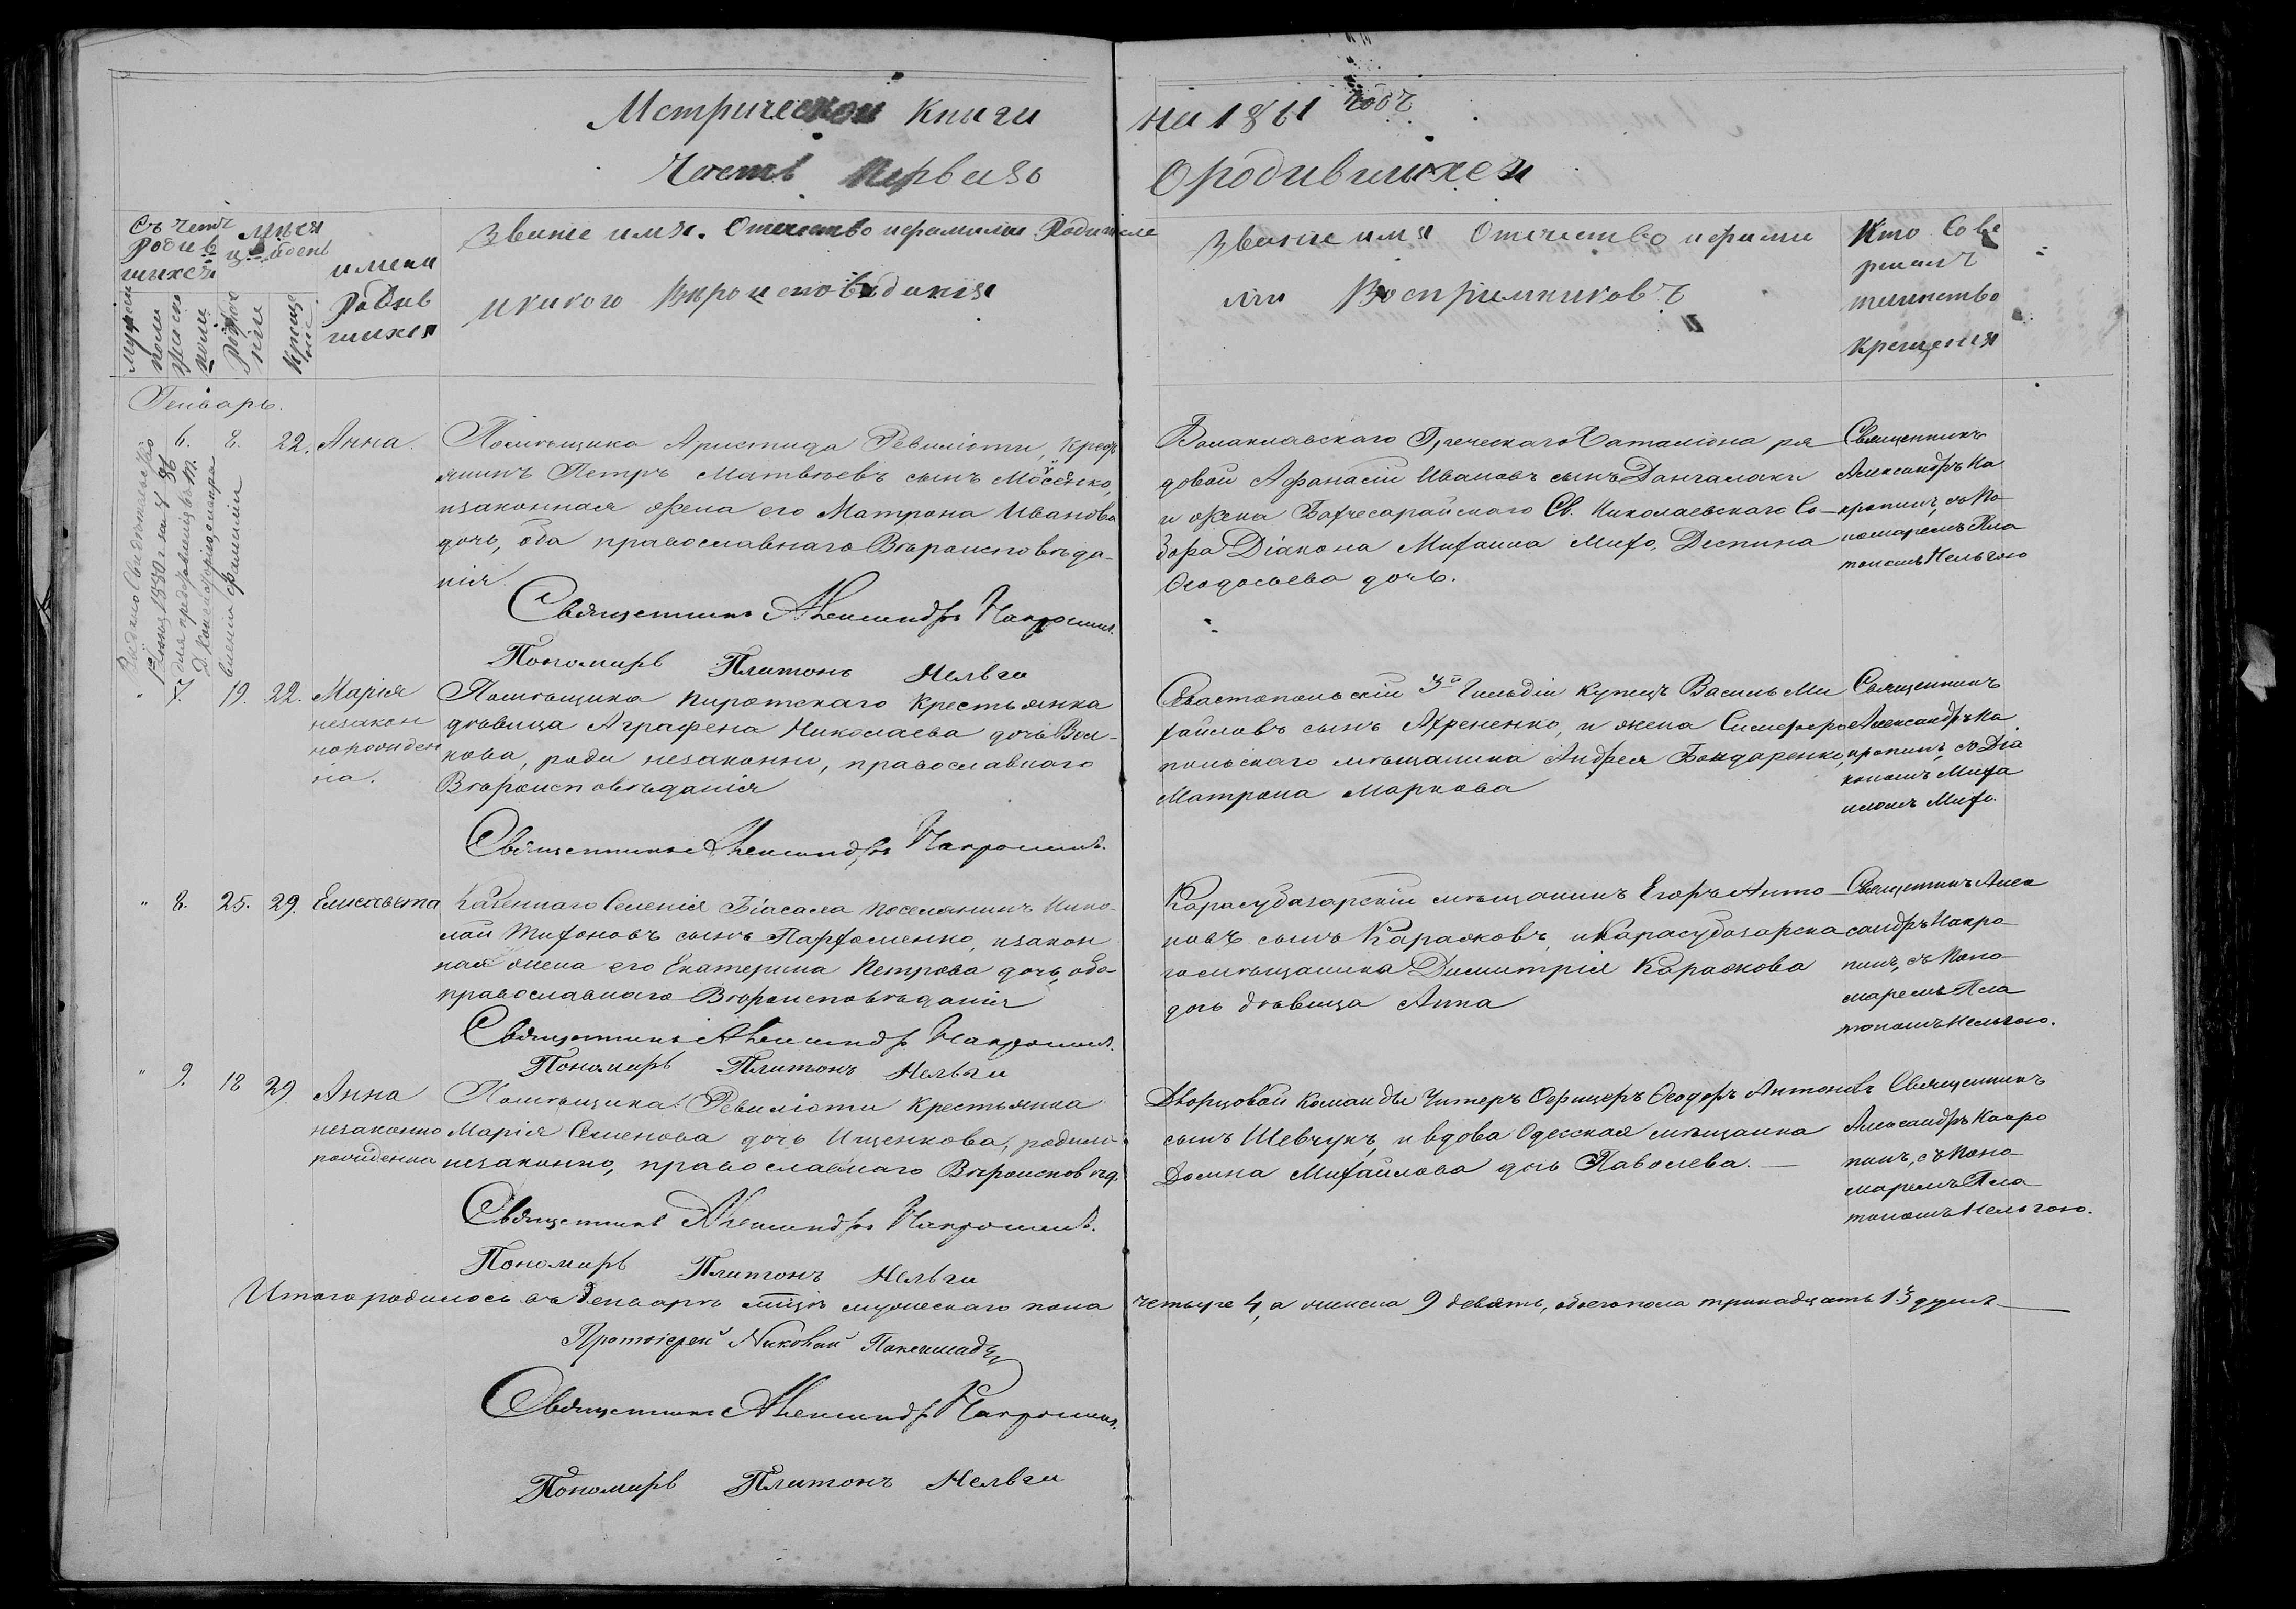 Метрической Книги
на 1861 годъ
Часть Первая
О родившихся
Съ четъ
Родив
шихся
Мужеска
пола
Женска
пола
мѣся
ць и день
Рожде
нія
Креще
нія
имена
Родив
шихся
Званіе имя. Отечество и фамилія Родителе
и какого Вѣроисповѣданія
Званіе имя Отечество и фами
лія Воспріемниковъ
Кто Сове
ршалъ
таинство
крещенія
Генварь.
6. 8. 22. Анна.
Помѣщика Аристида Ревиліоти, крест
янинъ Петръ Матвѣевъ сынъ Мосейко,
и законная жена его Матрона Иванова
дочь, оба православнаго Вѣроисповѣда-
нія.
Священникъ Александръ Накропинъ.
Пономарь Платонъ Нельга
Балаклавскаго Греческаго баталіона ря
довой Афанасій Ивановъ сынъ Дангалаки
и жена Бахчесарайскаго Св. Николаевскаго Со-
бора Діакона Михаила Михо, Деспина
Ѳеодосьева дочь.
Священникъ
Александръ На
кропинъ, съ По-
номаремъ Пла
тономъ Нельгою
" 7. 19. 22. Марія
незакон
норожден
на.
Помѣщика Пиротскаго Крестьянка
дѣвица Аграфена Николаева дочь Вол-
кова, роди незаконно, православнаго
Вѣроисповѣданія
Священникъ Александръ Накропинъ.
Севастопольскій 3й Гильдіи купецъ Василь Ми
хайловъ сынъ Ахрененко, и жена Симферо
польскаго мѣщанина Андрея Бондаренко,
Матрона Маркова
Священникъ
Александръ На
кропинъ, съ Діа
кономъ Миха
иломъ Михо.
" 8. 25. 29. Елисавета
Казеннаго Селенія Біасала поселянинъ Нико-
лай Тифоновъ сынъ Парфоменко, и закон
ная жена его Екатерина Петрова дочь, оба
православнаго Вѣроисповѣданія
Священникъ Александръ Накропинъ.
Пономарь Платонъ Нельга
Карасубазарскій мѣщанинъ Егоръ Анто-
новъ сынъ Каражовъ, и Карасубазарска
го мѣщанина Димитрія Каражова
дочь дѣвица Анна
Священникъ Алек
сандръ Накро-
пинъ, съ Поно-
маремъ Пла
тономъ Нельгою.
" 9. 18 29 Анна
незаконно
рожденна
Помѣщика Ревиліоти Крестьянка
Марія Семенова дочь Ищенкова, родила
незаконно, православнаго Вѣроисповѣд.
Священникъ Александръ Накропинъ.
Пономарь Платонъ Нельга
Дворцовой команды Унтеръ Офицеръ Ѳеодоръ Антоновъ
сынъ Шевчукъ, и вдова Одесская мѣщанка
Домна Михайлова дочь Паволева.
Священникъ
Александръ Накро
пинъ, съ Поно-
маремъ Пла
тономъ Нельгою.
Итого родилось въ Генварѣ мцѣ мужескаго пола
четыре 4, а женска 9 девять, обоего пола тринадцать 13 душъ
Протоіерей Николай
Священникъ Александръ Накропинъ.
Пономарь Платонъ Нельга